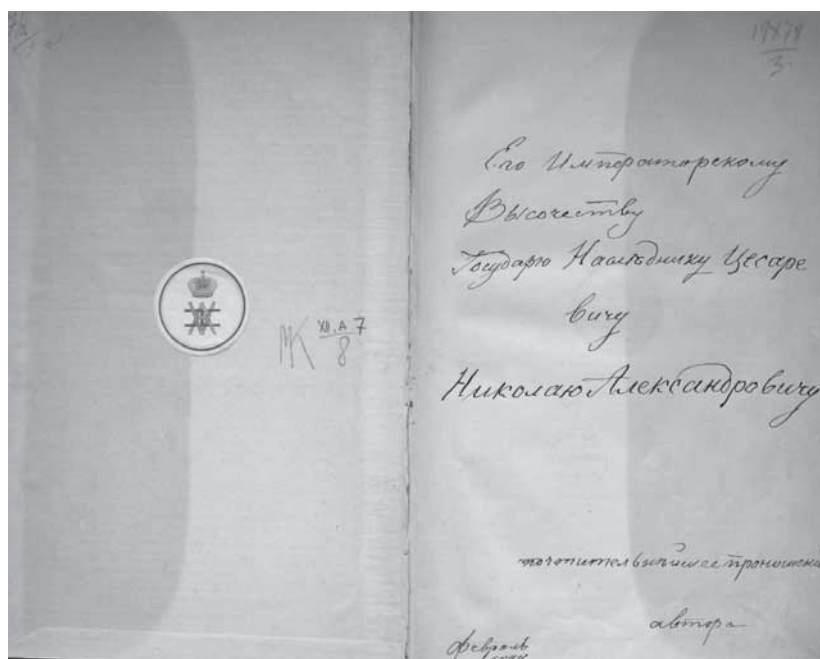 XII. А 7
8
19878
3.
Его Императорскому
Высочеству
Государю Наслѣднику Цесаре
вичу
Николаю Александровичу
почтительнѣйшее приношени
автора
Февраль